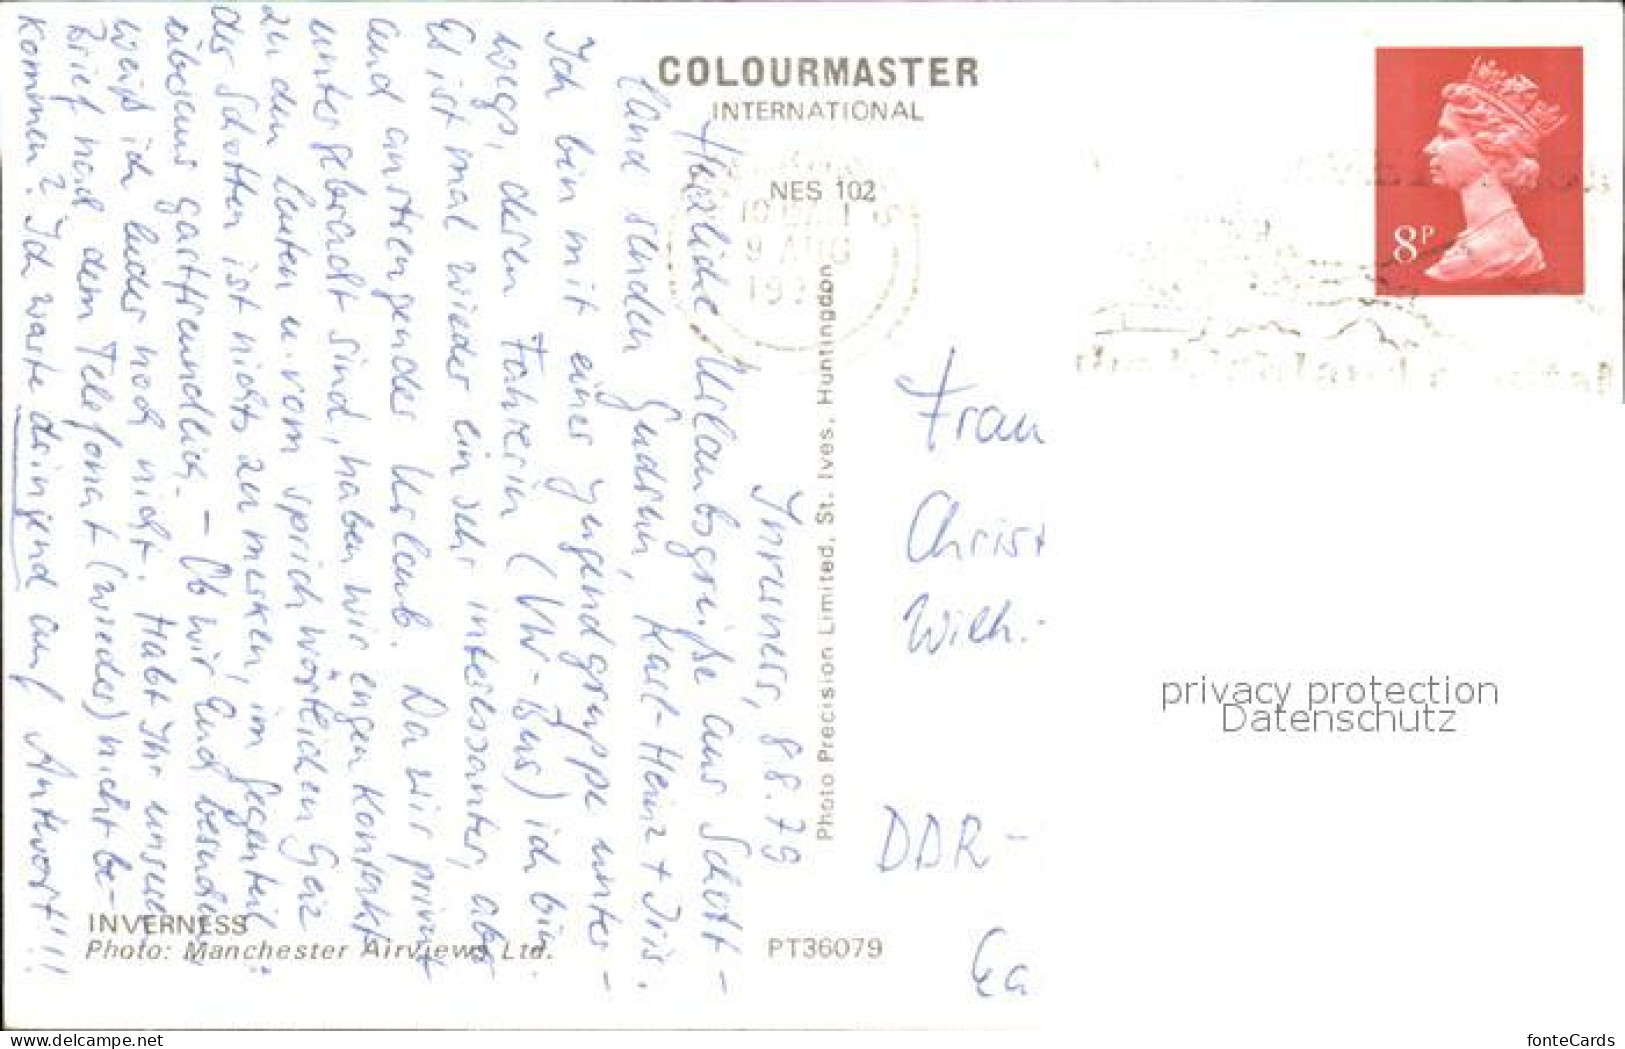 COLOURMASTER
INTERNATIONAL
NES 102
8P
9 AUG
19
Inverness, 8.8.79
Herzliche Urlaubsgrüße aus Schott-
land senden Gudrun, Karl-Heinz + Iris.
Ich bin mit einer Jugendgruppe unter-
wegs, deren Fahrerin (VW-Bus) ich bin.
Es ist mal wieder ein sehr interessanter, aber
auch anstrengender Urlaub. Da wir privat
untergebracht sind, haben wir engen Kontakt
zu den Leuten u. vom sprichwörtlichen Geiz
der Schotten ist nichts zu merken, im Gegenteil:
überaus gastfreundlich. – Ob wir Euch besuchen,
weiß ich leider noch nicht. Habt Ihr unseren
Brief nach dem Telefonat (wieder) nicht be-
kommen? Ich warte dringend auf Antwort!!!
Photo Precision Limited, St. Ives, Huntingdon
Frau
Christ
Wilh.-
DDR -
privacy protection
Datenschutz
INVERNESS
Photo: Manchester Airviews Ltd.
PT36079
www.delcampe.net
fonteCards